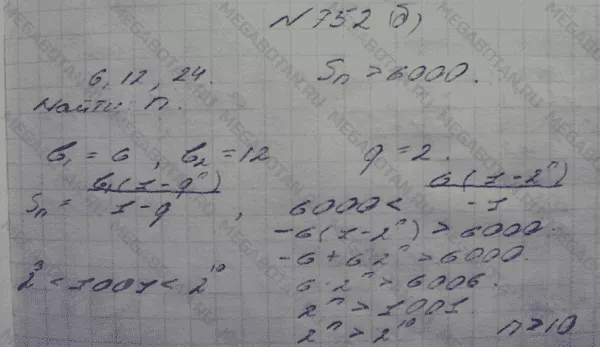 N 752 (б)
6, 12, 24.   Sₙ > 6000.
Найти n.
b₁ = 6, b₂ = 12   q = 2.
Sₙ = b₁(1-qⁿ)/1-q, 6000 < 6(1-2ⁿ)/-1
-6(1-2ⁿ) > 6000.
-6+6·2ⁿ > 6000.
2⁹ < 1001 < 2¹⁰   6·2ⁿ > 6006.
2ⁿ > 1001.
2ⁿ > 2¹⁰   n ≥ 10
MEGABOTAN.RU